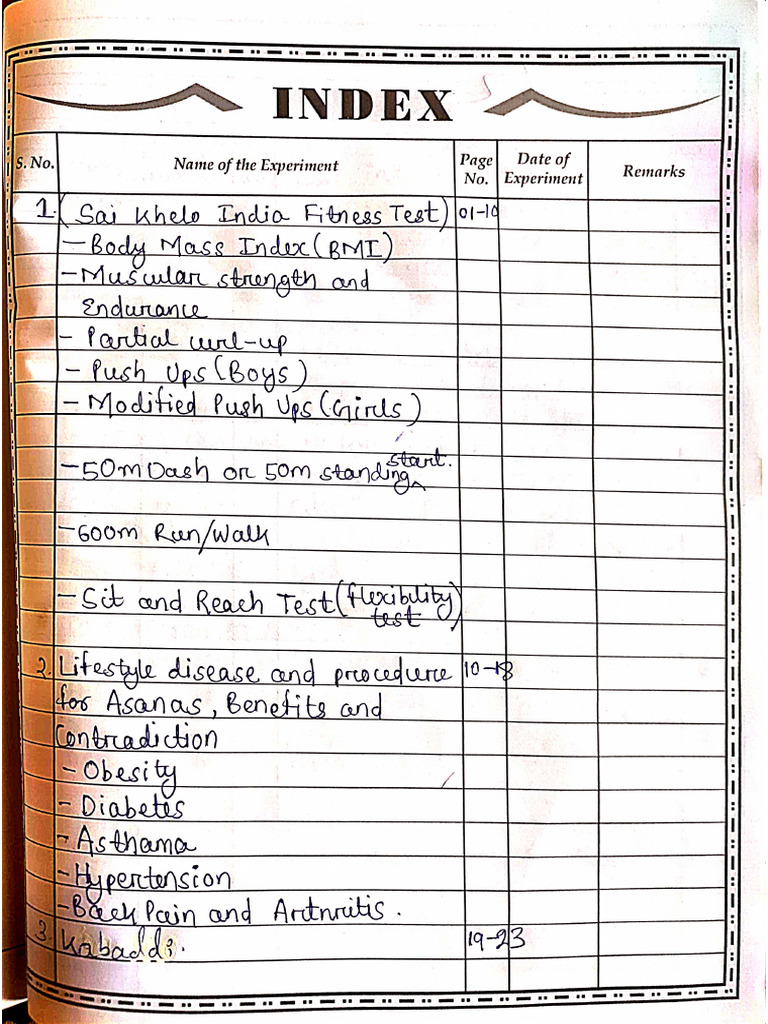 INDEX
S. No. Name of the Experiment Page No. Date of Experiment Remarks
1. (Sai Khelo India Fitness Test) 01-10
- Body Mass Index (BMI)
- Muscular strength and
Endurance
- Partial curl-up
- Push Ups (Boys)
- Modified Push Ups (Girls)
- 50m Dash or 50m standing start.
- 600m Run/Walk
- Sit and Reach Test (flexibility
test)
2. Lifestyle disease and procedure 10-18
for Asanas, Benefits and
Contradiction
- Obesity
- Diabetes
- Asthama
- Hypertension
- Back Pain and Arthritis.
3. Kabaddi. 19-23